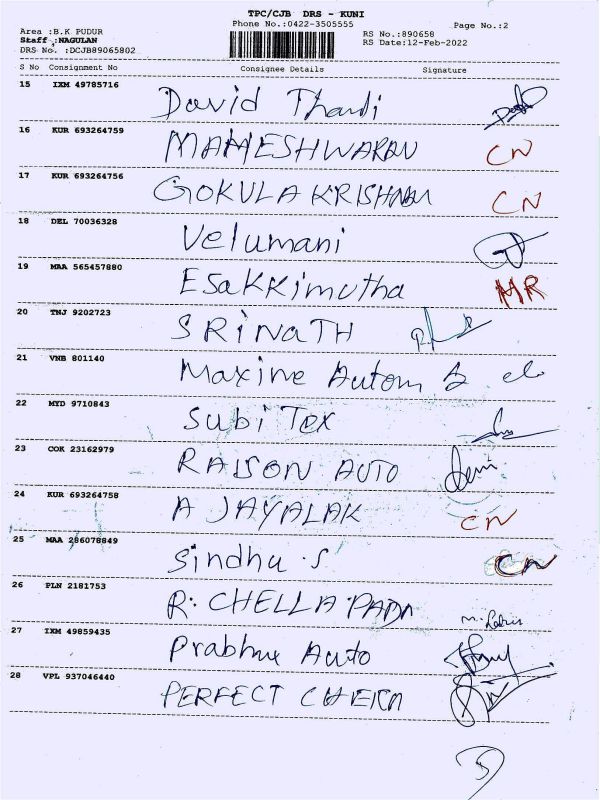 TPC/CJB DRS - KUNI
Phone No.:0422-3505555
Page No.:2
Area :B.K PUDUR
RS No.:890658
Staff :NAGULAN
RS Date:12-Feb-2022
DRS No. :DCJB89065802
S No Consignment No Consignee Details Signature
15 IXM 49785716 David Thardi
16 KUR 693264759 MAHESHWARAN CN
17 KUR 693264756 GOKULA KRISHNAN CN
18 DEL 70036328 Velumani
19 MAA 565457880 Esakkimutha MR
20 TNJ 9202723 SRINATH
21 VNB 801140 Maxine Autom
22 MYD 9710843 Subi Tex
23 COK 23162979 RAISON AUTO
24 KUR 693264758 A JAYALAK CN
25 MAA 286078849 Sindhu .S CN
26 PLN 2181753 R. CHELLA PADN
27 IXM 49859435 Prabhu Auto
28 VPL 937046440 PERFECT